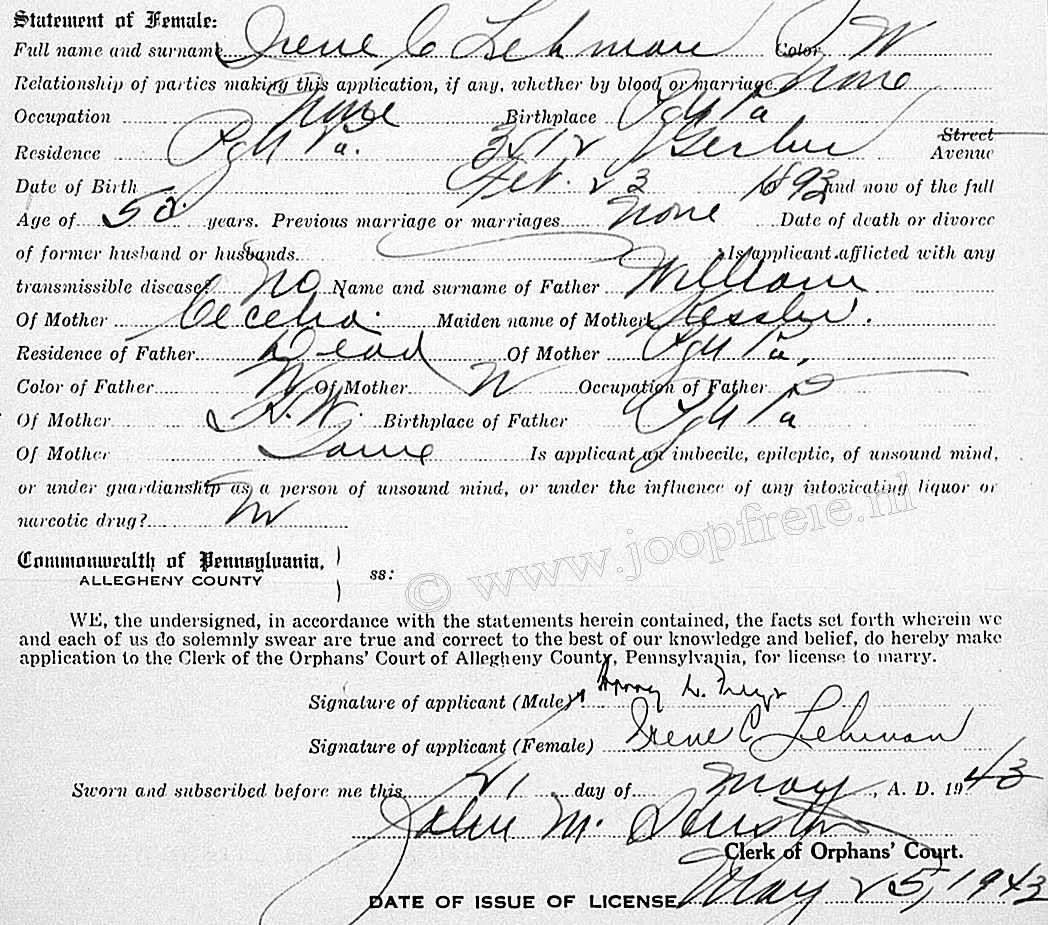 Statement of Female:
Full name and surname Irene C Lehman Color W
Relationship of parties making this application, if any, whether by blood or marriage None
Occupation None Birthplace Pgh Pa
Residence Pgh Pa. 3412 Gerber Street Avenue
Date of Birth Feb. 23 1893 and now of the full
Age of 50 years. Previous marriage or marriages None Date of death or divorce
of former husband or husbands Is applicant afflicted with any
transmissible disease? No Name and surname of Father William
Of Mother Cecelia Maiden name of Mother Kessler.
Residence of Father Dead Of Mother Pgh Pa,
Color of Father W Of Mother W Occupation of Father
Of Mother H.W. Birthplace of Father Pgh Pa
Of Mother Same Is applicant an imbecile, epileptic, of unsound mind,
or under guardianship as a person of unsound mind, or under the influence of any intoxicating liquor or
narcotic drug? No
© www.joopfreie.nl
Commonwealth of Pennsylvania,
ALLEGHENY COUNTY ss:
WE, the undersigned, in accordance with the statements herein contained, the facts set forth wherein we
and each of us do solemnly swear are true and correct to the best of our knowledge and belief, do hereby make
application to the Clerk of the Orphans' Court of Allegheny County, Pennsylvania, for license to marry.
Signature of applicant (Male)
Signature of applicant (Female) Irene C Lehman
Sworn and subscribed before me this 21 day of May, A. D. 1943
John M.
Clerk of Orphans' Court.
DATE OF ISSUE OF LICENSE May 25, 1943